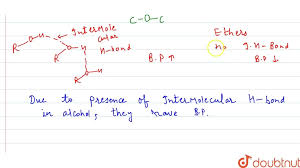 C-O-C
Intermole
cular
H-bond
R O H
R O H
R O H
B.P ↑
Ethers
no I.H-Bond
B.P ↓
Due to presence of Intermolecular H-bond
in alcohol, they have B.P.
doubtnut